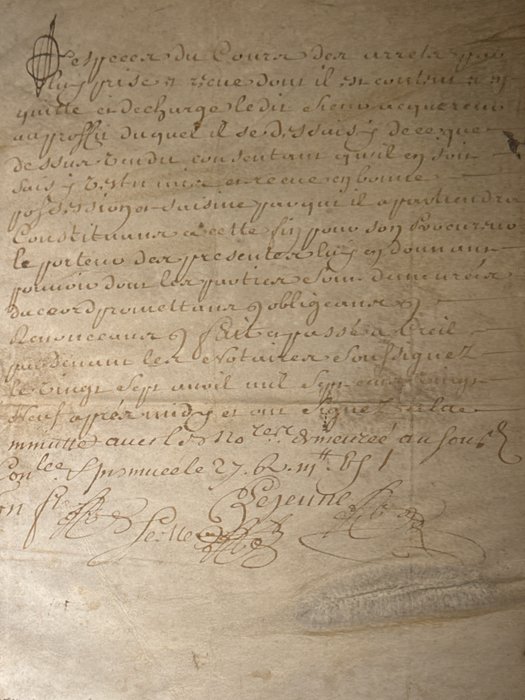 Especes du Cours des arrests par
luy prise et recue dont il est content en
quitte et decharge ledit sieur acquereur
au proffit duquel il se dessaisy de ce que
dessus vendu consentant qu'il en soit
saisy vestu mis et receu en bonne
possession et saisine par qui il apartiendra
Constituant a cette fin pour son Procureur
le porteur des presentes luy en donnant
pouvoir dont les parties sont demeurées
daccord promettans obligeans
Renonceans fait et passé a Creil
pardevant les Notaires soussignez
le vingt sept avril mil sept cens vingt
Neuf aprés midy et ont signez a la
minutte avec les No.res demeurée au sous.é
Con.lee le 27.
Lejeune